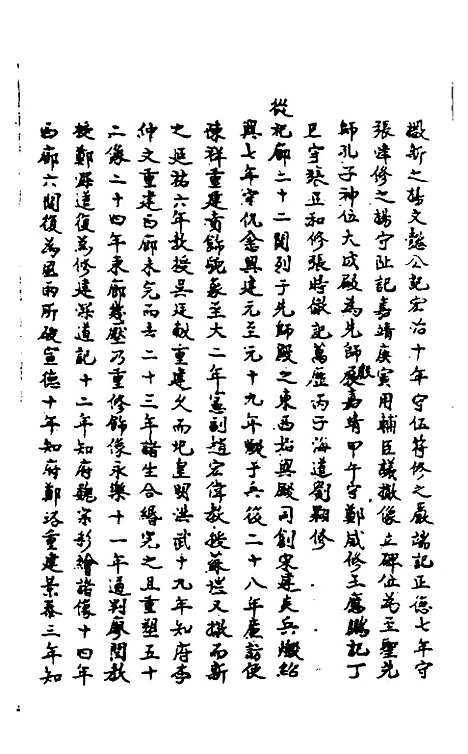 撤新之楊文懿公記宏治十年守伍符修之嚴端記正德七年守
張津修之楊守阯記嘉靖庚寅用輔臣議撤像立碑位為至聖先
師孔子神位大成殿為先師殿嘉靖甲午守鄭威修王應鵬記丁
卫守張正和修張時徹記萬歷丙子海道劉翾修
從祀廊二十二間列于先師殿之東西指與殿同創宋建炎兵燬紹
興七年守仇悆興建元至元十九年燬于兵後二十八年廉訪使
陳祥重建賁飾貌象至大二年憲副趙宏偉教授蘇壎又撤而新
之延祐六年教授吳廷獻重建久而圮皇明洪武十九年知府李
仲文重建西廊未完而去二十三年諸生合緡完之且重塑五十
二像二十四年東廊幾壓乃重修飾像永樂十一年通判廖閏教
授鄭源道復為修建源道記十二年知府魏宗彩繪諸像十四年
西廊六間復為風雨所破宣德十年知府鄭洛重建景泰三年知